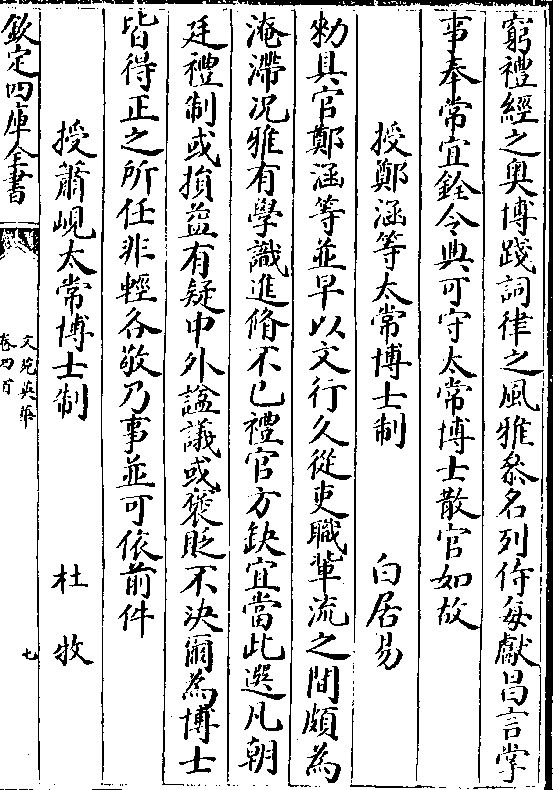 窮禮經之奥博踐詞律之風雅叅名列侍每獻昌言掌
事奉常宜銓令典可守太常博士散官如故
授鄭涵等太常博士制 白居易
勑具官鄭涵等並早以文行久從吏職軰流之間頗為
淹滯況雅有學識進脩不已禮官方缺宜當此選凡朝
廷禮制或損益有疑中外諡議或褒貶不決爾為博士
皆得正之所任非輕各敬乃事並可依前件
授蕭峴太常博士制 杜牧
欽定四庫全書
文苑英華
卷四百
七